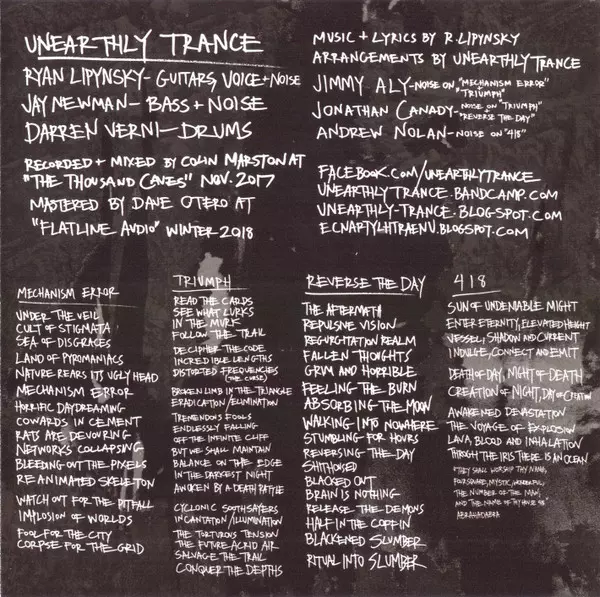 UNEARTHLY TRANCE
RYAN LIPYNSKY - GUITARS, VOICE + NOISE
JAY NEWMAN - BASS + NOISE
DARREN VERNI - DRUMS
RECORDED + MIXED BY COLIN MARSTON AT
"THE THOUSAND CAVES" NOV. 2017
MASTERED BY DAVE OTERO AT
"FLATLINE AUDIO" WINTER 2018
MUSIC + LYRICS BY R. LIPYNSKY
ARRANGEMENTS BY UNEARTHLY TRANCE
JIMMY ALY - NOISE ON "MECHANISM ERROR"
"TRIUMPH"
JONATHAN CANADY - NOISE ON "TRIUMPH"
+ "REVERSE THE DAY"
ANDREW NOLAN - NOISE ON "418"
FACEBOOK.COM/UNEARTHLYTRANCE
UNEARTHLYTRANCE.BANDCAMP.COM
UNEARTHLY-TRANCE.BLOGSPOT.COM
ECNARTYLHTRAENU.BLOGSPOT.COM
MECHANISM ERROR
UNDER THE VEIL
CULT OF STIGMATA
SEA OF DISGRACES
LAND OF PYROMANIACS
NATURE REARS ITS UGLY HEAD
MECHANISM ERROR
HORRIFIC DAYDREAMING
COWARDS IN CEMENT
RATS ARE DEVOURING
NETWORKS COLLAPSING
BLEEDING OUT THE PIXELS
RE ANIMATED SKELETON
WATCH OUT FOR THE PITFALL
IMPLOSION OF WORLDS
FOOL FOR THE CITY
CORPSE FOR THE GRID
TRIUMPH
READ THE CARDS
SEE WHAT LURKS
IN THE MURK
FOLLOW THE TRAIL
DECIPHER THE CODE
INCREDIBLE LENGTHS
DISTORTED FREQUENCIES
(THE CURSE)
BROKEN LIMB IN THE TRIANGLE
ERADICATION/ELIMINATION
TREMENDOUS FOOLS
ENDLESSLY FALLING
OFF THE INFINITE CLIFF
BUT WE SHALL MAINTAIN
BALANCE ON THE EDGE
IN THE DARKEST NIGHT
AWOKEN BY A DEATH RATTLE
CYCLONIC SOOTHSAYERS
INCANTATION/ILLUMINATION
THE TORTUROUS TENSION
THE FUTURE ACRID AIR
SALVAGE THE TRAIL
CONQUER THE DEPTHS
REVERSE THE DAY
THE AFTERMATH
REPULSIVE VISION
REGURGITATION REALM
FALLEN THOUGHTS
GRIM AND HORRIBLE
FEELING THE BURN
ABSORBING THE MOON
WALKING INTO NOWHERE
STUMBLING FOR HOURS
REVERSING THE DAY
SHITHOUSED
BLACKED OUT
BRAIN IS NOTHING
RELEASE THE DEMONS
HALF IN THE COFFIN
BLACKENED SLUMBER
RITUAL INTO SLUMBER
418
SUN OF UNDENIABLE MIGHT
ENTER ETERNITY, ELEVATED HEIGHT
VESSEL, SHADOW AND CURRENT
INDULGE, CONNECT AND EMIT
DEATH OF DAY, NIGHT OF DEATH
CREATION OF NIGHT, DAY OF CREATION
AWAKENED DEVASTATION
THE VOYAGE OF EXPLOSION
LAVA, BLOOD AND INHALATION
THROUGH THE IRIS THERE IS AN OCEAN
"THEY SHALL WORSHIP THY NAME,
FOURSQUARE, MYSTIC, WONDERFUL,
THE NUMBER OF THE MAN;
AND THE NAME OF THY HOUSE 418"
ABRAHADABRA